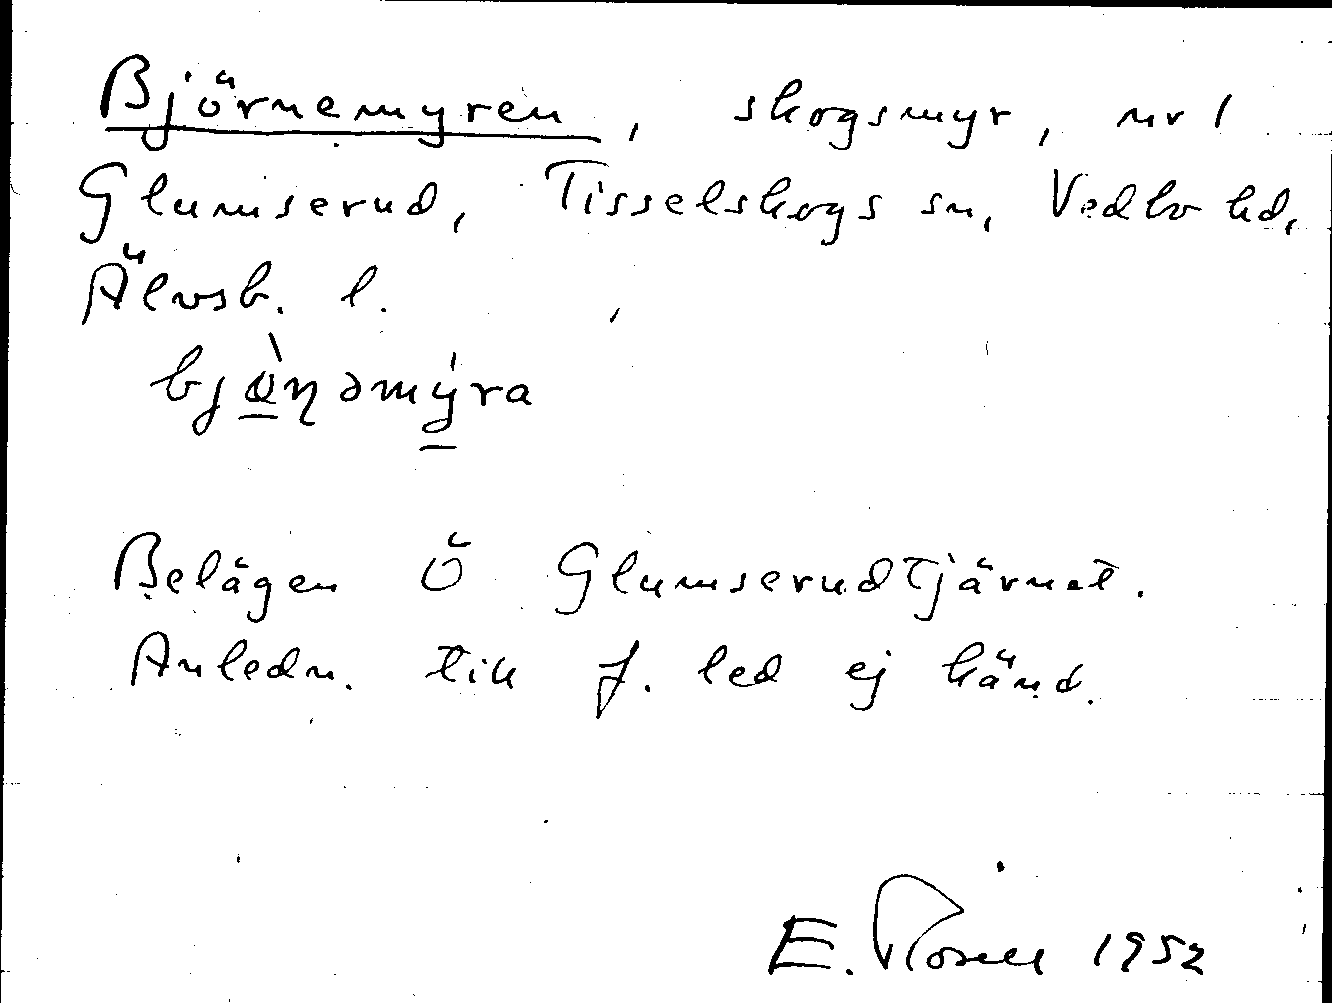 Björnemyren, skogsmyr, nr 1
Glumserud, Tisselskogs sn, Vedbo hd,
Älvsb. l.
bjǿ̀ṇəmýra
Belägen Ö Glumserudtjärnet.
Anledn. till f. led ej känd.
E. 1952